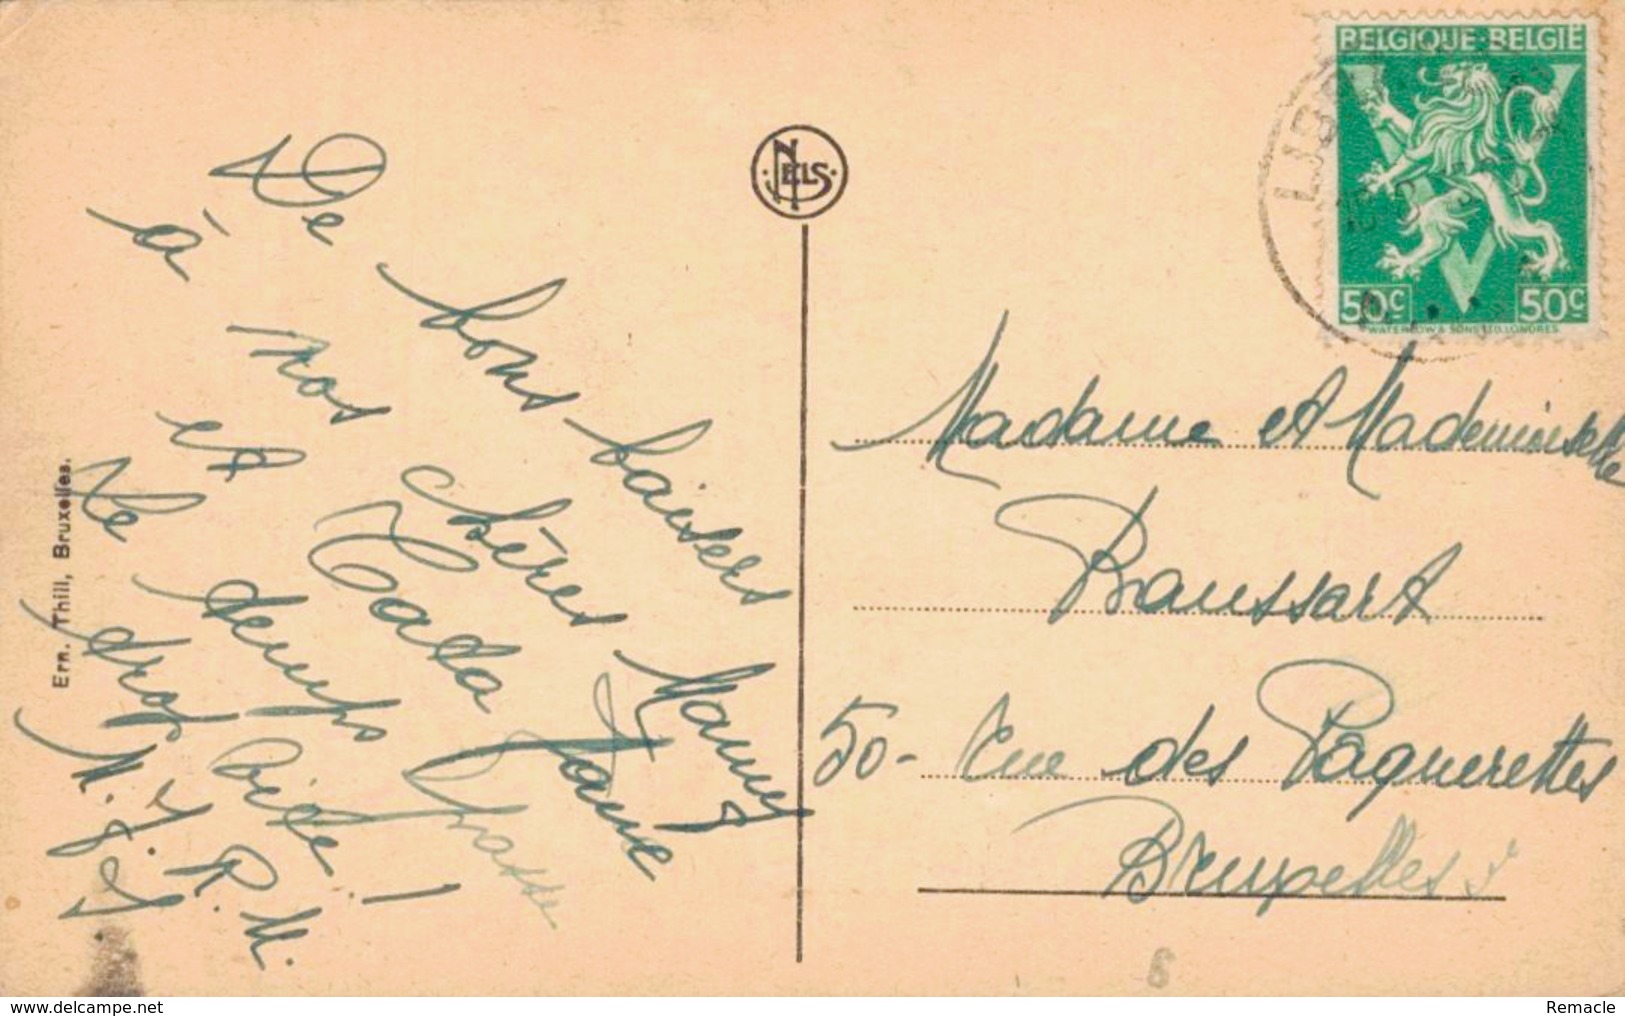 De bons baisers
à nos chères Mamy
et Cada Jane
Le temps passe
trop vite !
M. J. R. M.
J. J.
Ern. Thill, Bruxelles.
NELS
BELGIQUE·BELGIË
50c 50c
WATERLOW & SONS LTD. LONDRES.
Madame et Mademoiselle
Raussart
50 - Rue des Paquerettes
Bruxelles
6
www.delcampe.net
Remacle